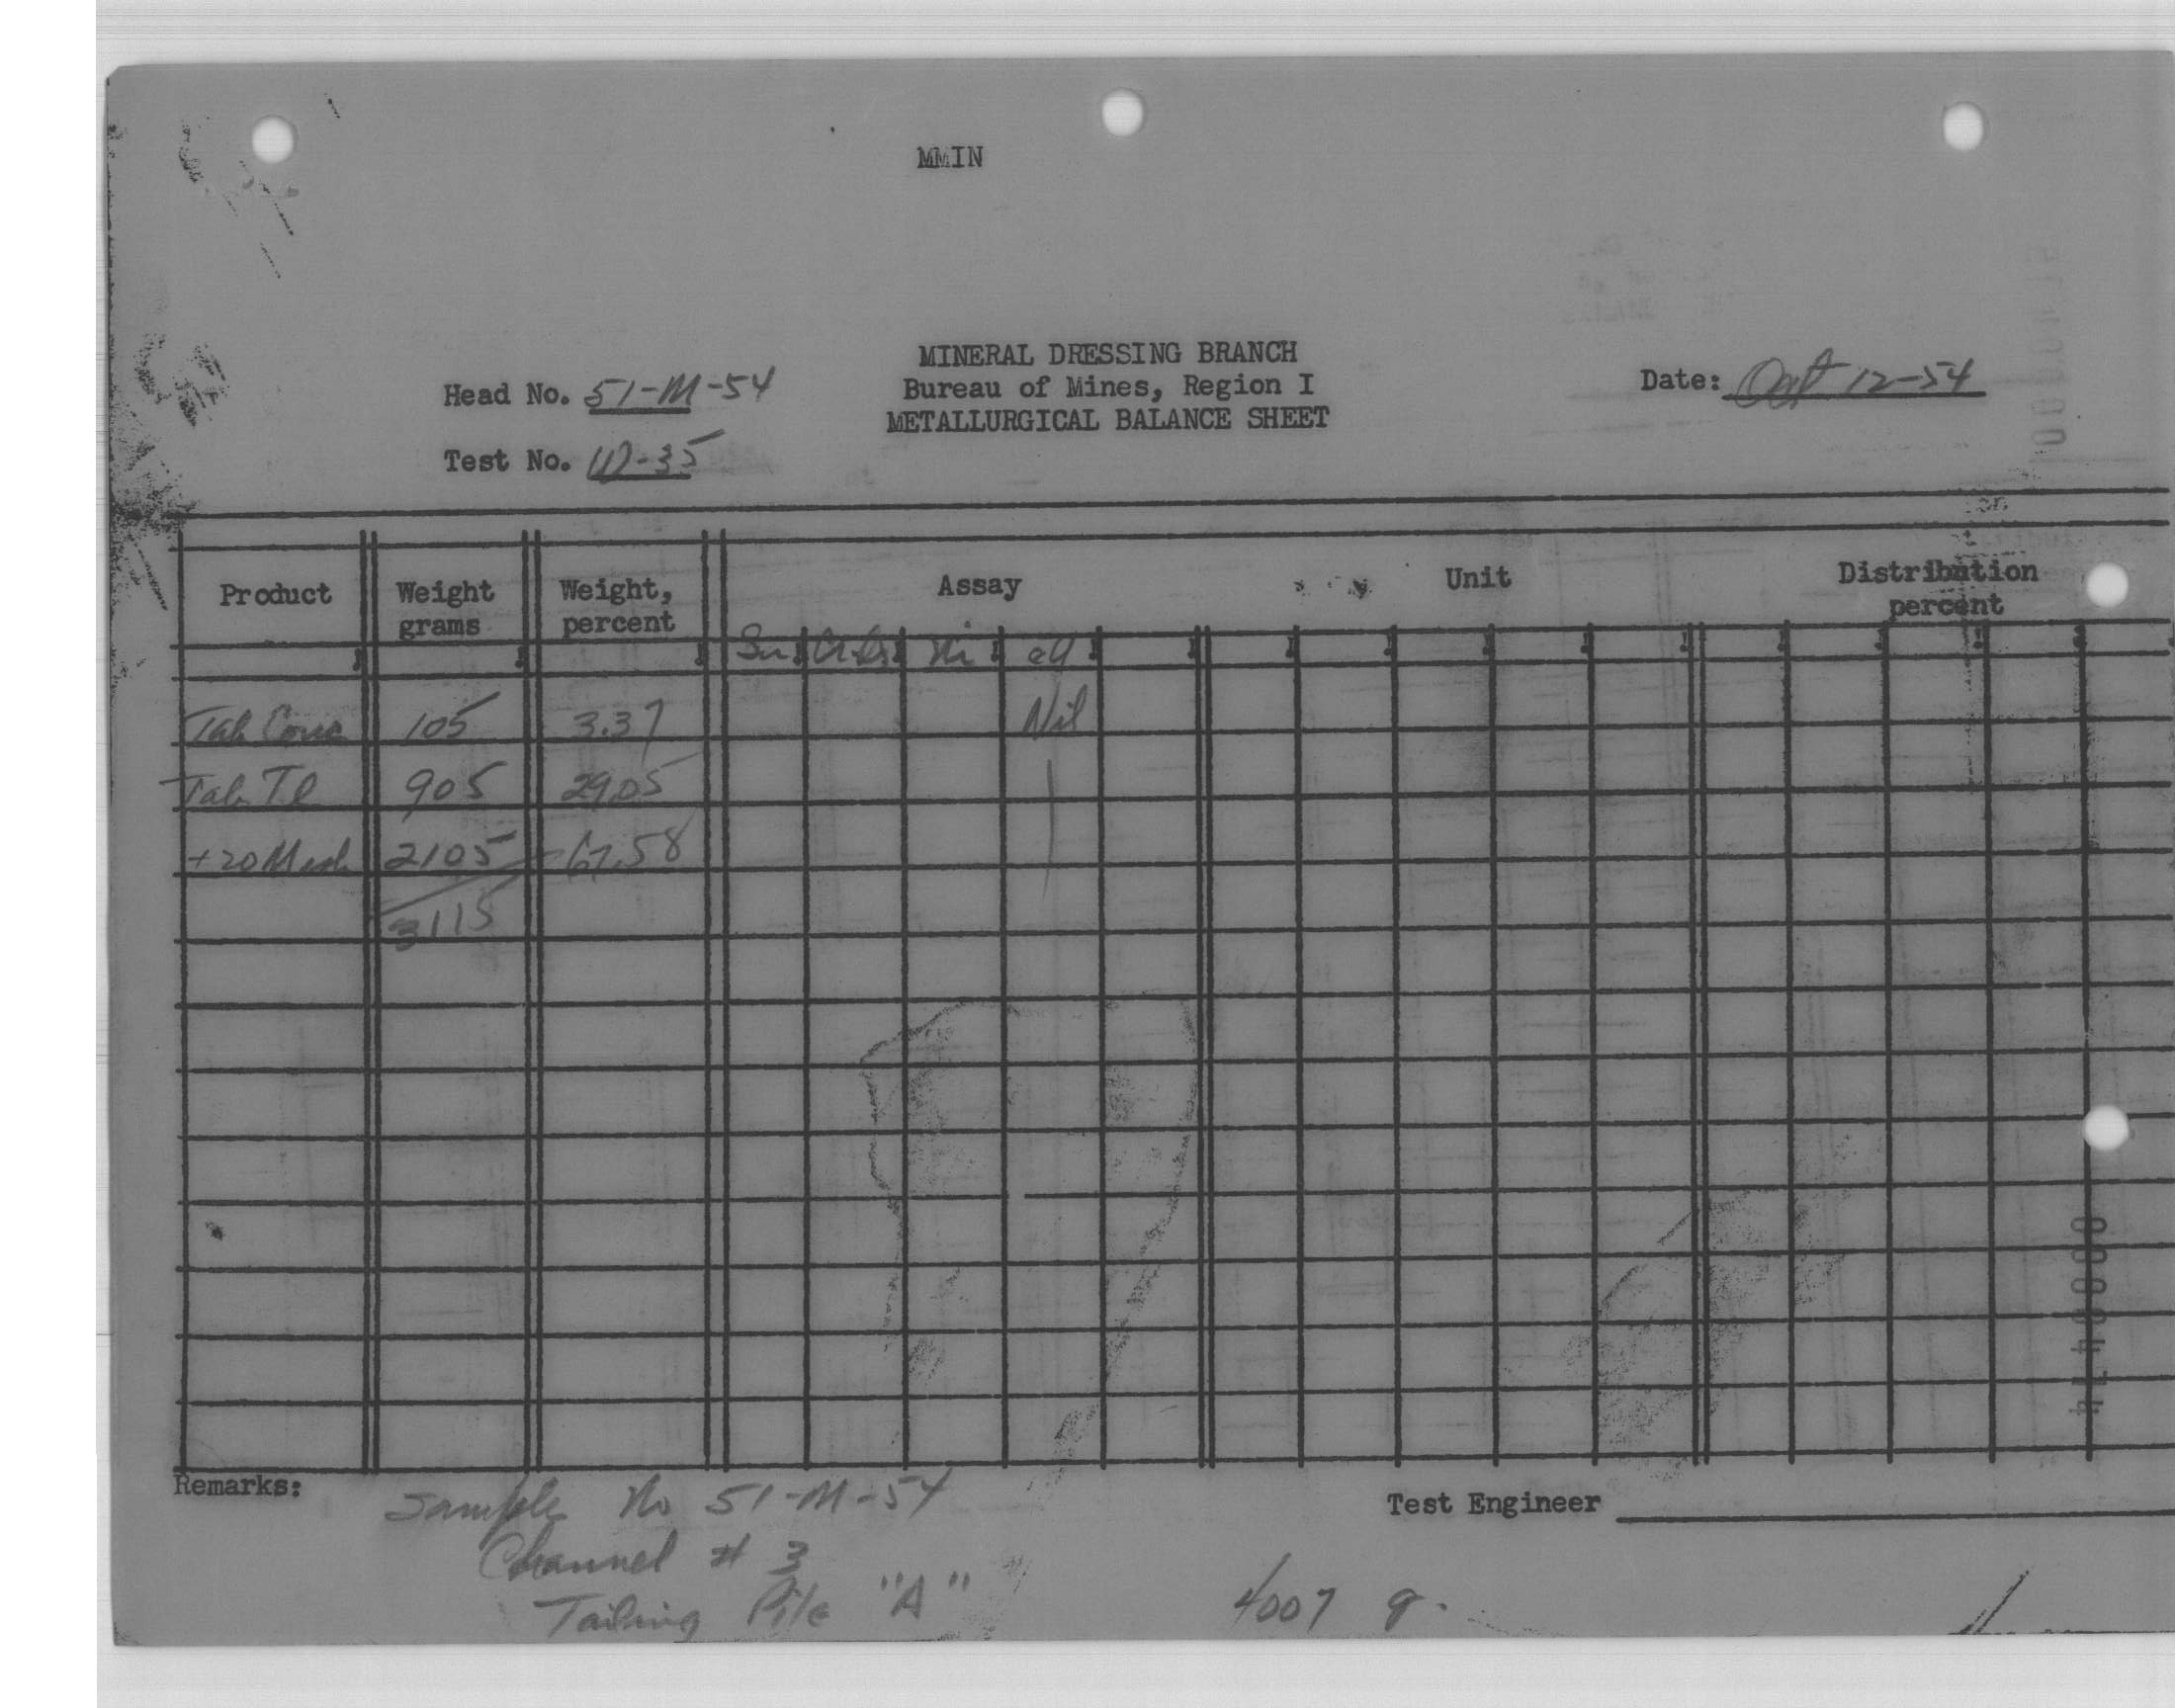 MMIN
MINERAL DRESSING BRANCH
Head No. 51-M-54 Bureau of Mines, Region I Date: Oct 12-54
METALLURGICAL BALANCE SHEET
Test No. W-35
Product Weight grams Weight, percent Assay Unit Distribution percent
Sn
Tab Conc 105 3.37 Nil
Tab Tl 905 29.05
+20 Mesh 2105 67.58
3115
000474
Remarks: Sample No 51-M-54 Test Engineer
Channel # 3
Tailing Pile "A" 4007 g.